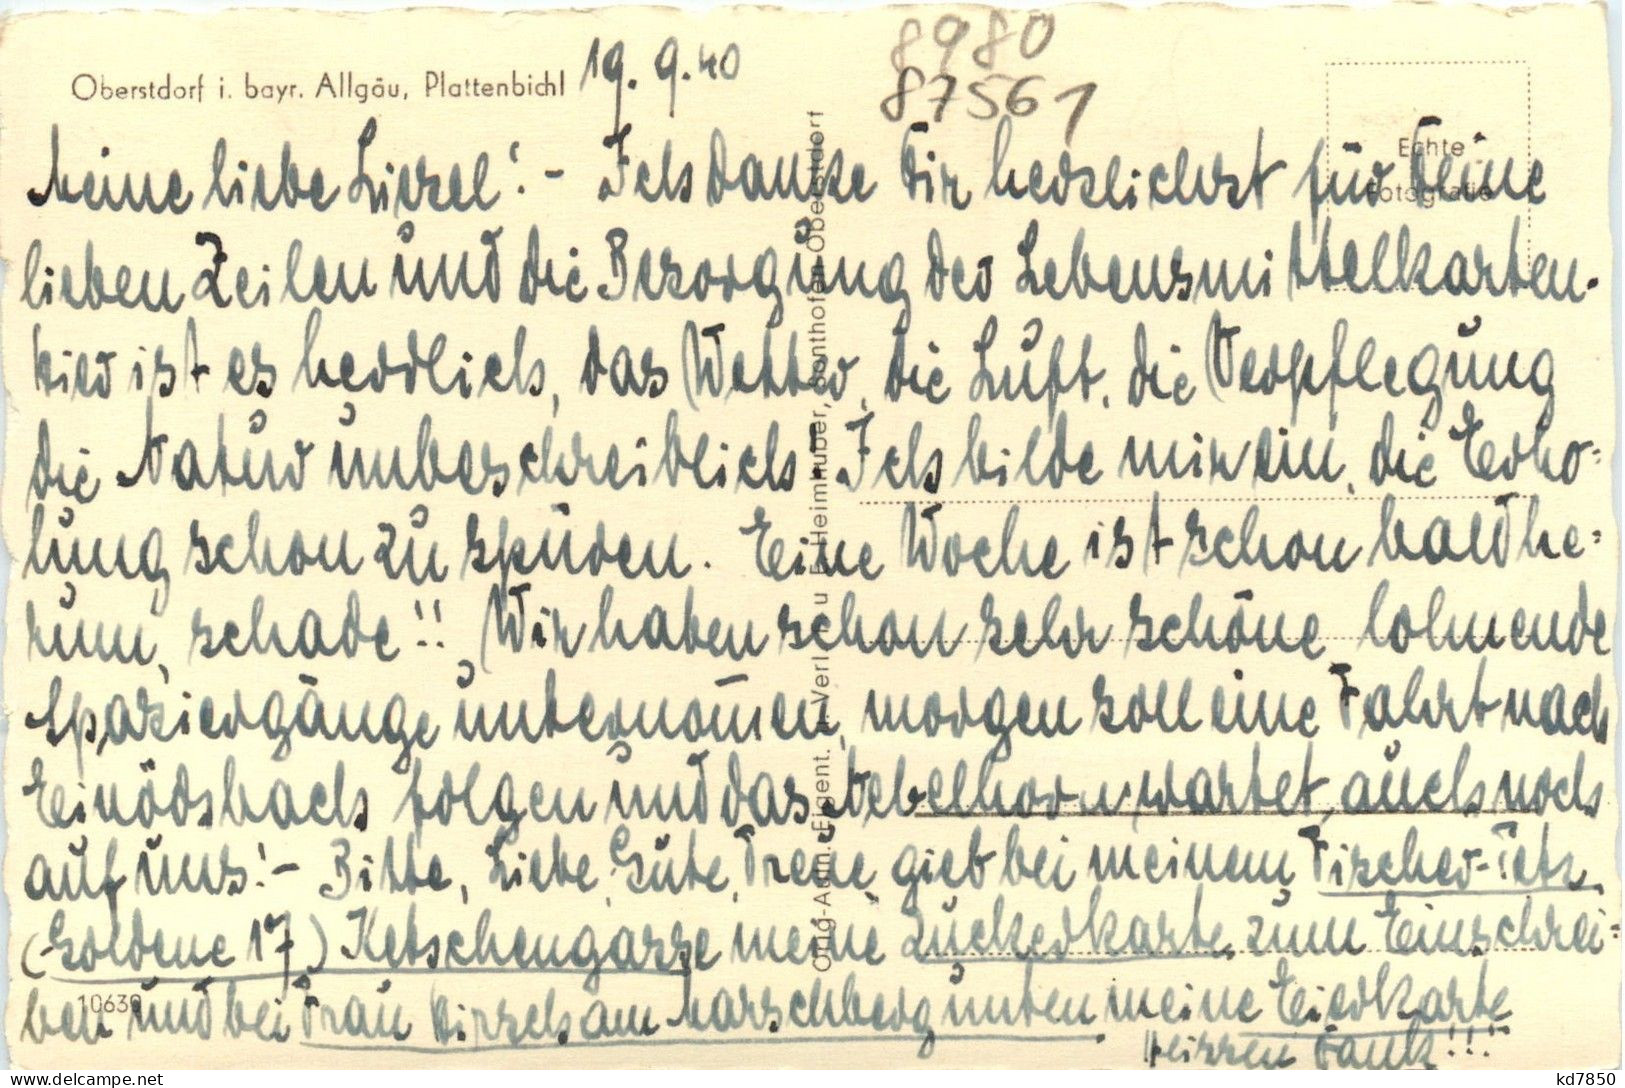 Oberstdorf i. bayr. Allgäu, Plattenbichl
19. 9. 40
8980
87561
Echte
Fotografie
Meine liebe Liesel! - Ich danke Dir herzlichst für Deine
lieben Zeilen und die Besorgung der Lebensmittelkarten.
hier ist es herrlich, das Wetter, die Luft, die Verpflegung
die Natur unbeschreiblich Ich bilde mir ein, die Erho=
lung schon zu spüren. Eine Woche ist schon bald he=
rum, schade!! Wir haben schon sehr schöne lohnende
Spaziergänge unternom̅en, morgen soll eine Fahrt nach
Einödsbach folgen und das Nebelhorn wartet auch noch
auf uns! - Bitte, Liebe, Gute, Treue gieb bei meinem Fischer-
(Goldene 17) Ketschengasse meine Zuckerkarte zum Einschrei=
ben und bei Frau Hirsch am Marschberg unten meine Eierkarte
Heissen Dank!!!
Orig.-Aufn. Eigent. u. Verl. u F. Heimhuber, Sonthofen-Oberstdorf
10639
kd7850